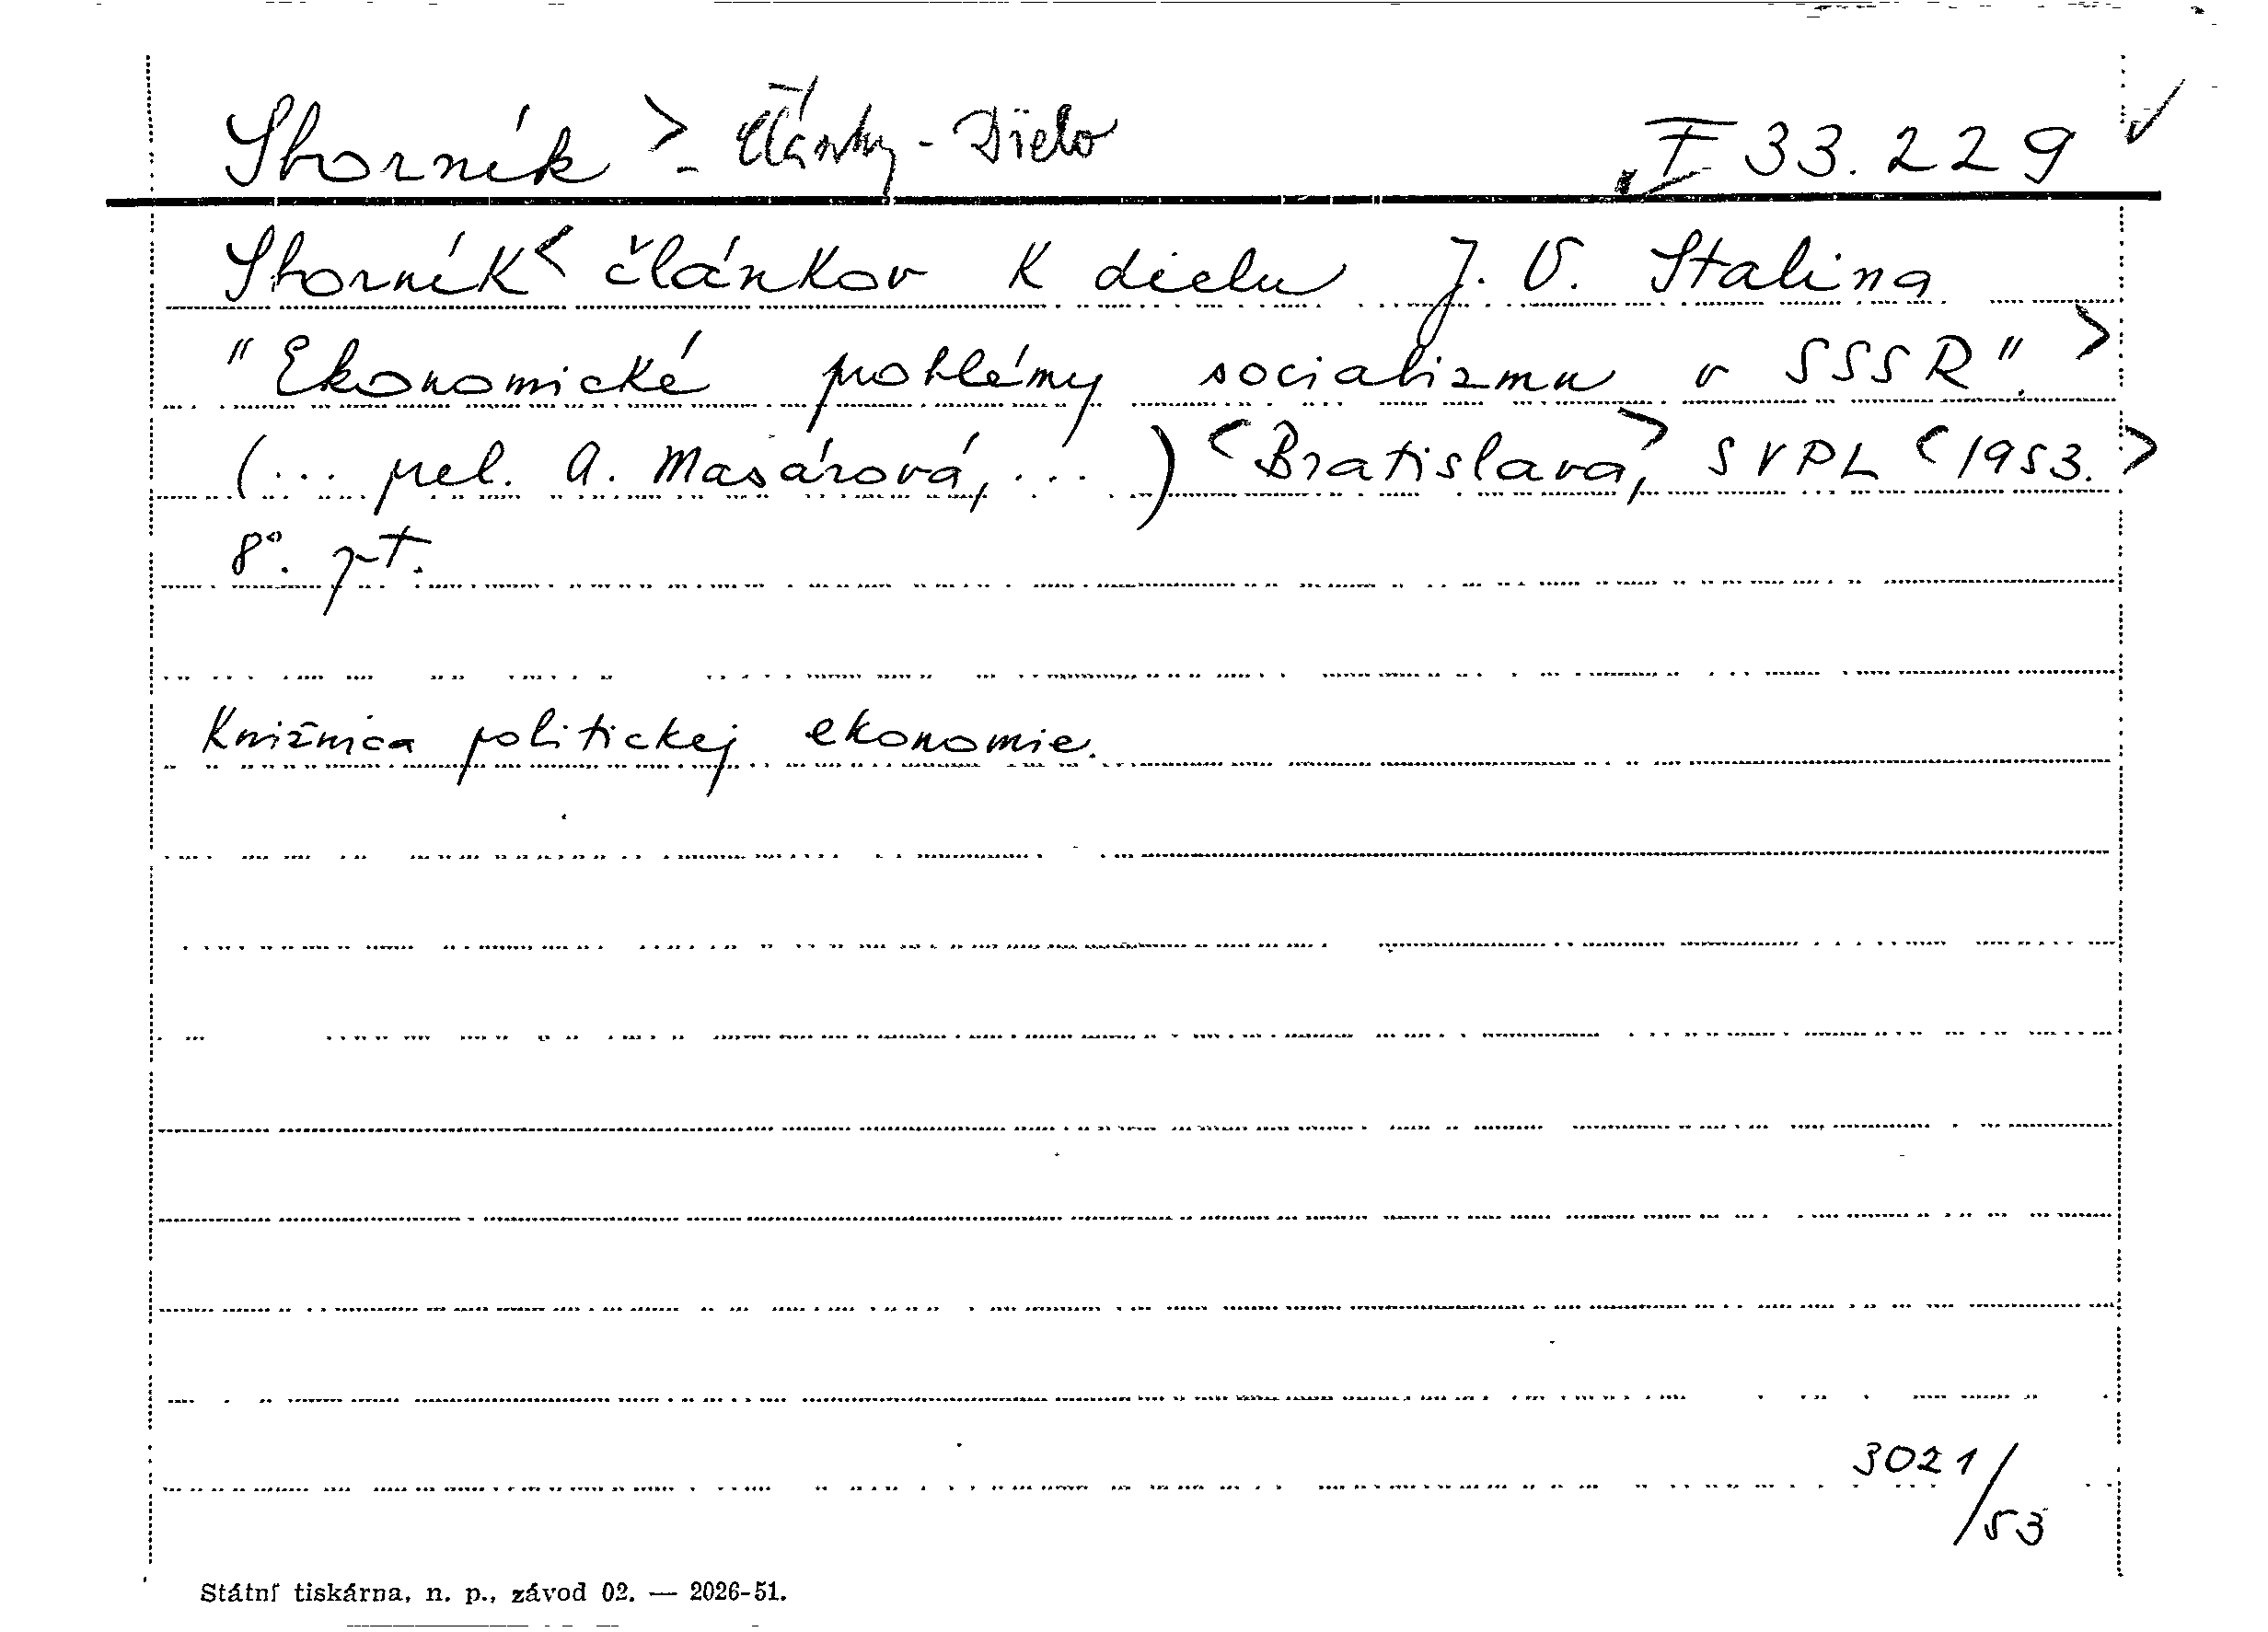 Sborník > - Články - Dielo I 33.229 ✓
Sborník < článkov k dielu J. V. Stalina
"Ekonomické problémy socializmu v SSSR". >
(... prel. A. Masárová, ... ) < Bratislava, > SVPL < 1953. >
8°. pt.
Knižnica politickej ekonomie.
3021/53
Státní tiskárna, n. p., závod 02. — 2026-51.